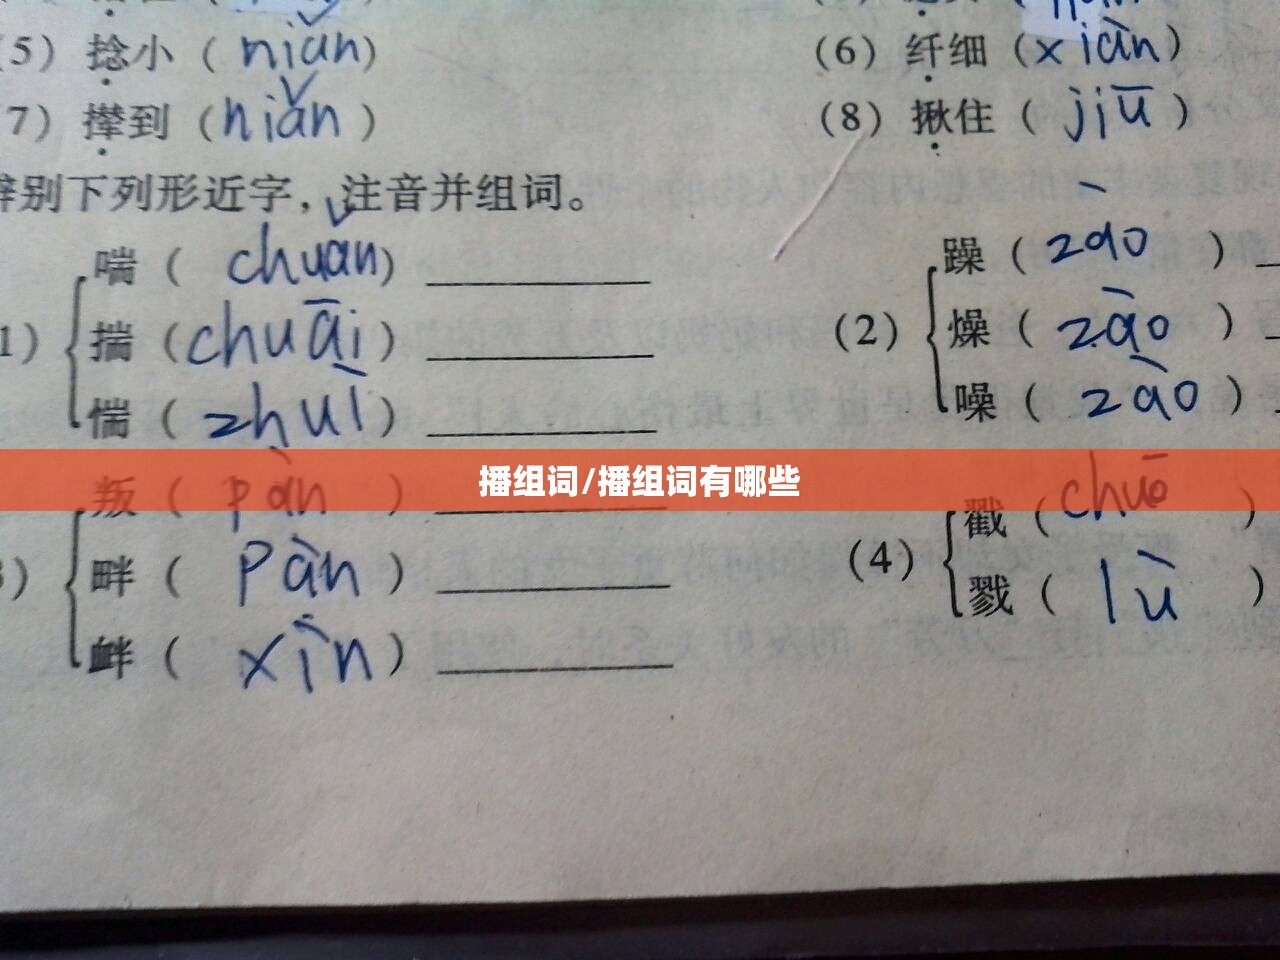 (5) 捻小 ( niǎn)
(6) 纤细 (xiàn)
(7) 撵到 (niǎn )
(8) 揪住 ( jiū )
辨别下列形近字，注音并组词。
喘 ( chuǎn)
1) 揣 (chuāi)
惴 ( zhuì )
躁 ( zào )
(2) 燥 ( zào )
噪 ( zào )
播组词/播组词有哪些
叛 ( pàn )
3) 畔 ( pàn )
衅 ( xìn )
戳 (chuō )
(4)
戮 ( lù )